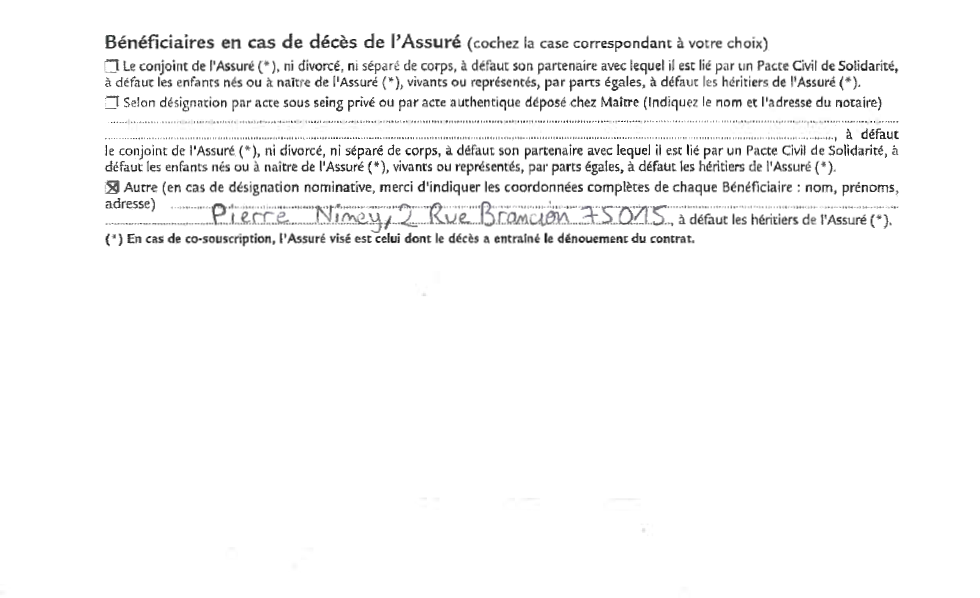 Bénéficiaires en cas de décès de l'Assuré (cochez la case correspondant à votre choix)
☐ Le conjoint de l'Assuré (*), ni divorcé, ni séparé de corps, à défaut son partenaire avec lequel il est lié par un Pacte Civil de Solidarité,
à défaut les enfants nés ou à naître de l'Assuré (*), vivants ou représentés, par parts égales, à défaut les héritiers de l'Assuré (*).
☐ Selon désignation par acte sous seing privé ou par acte authentique déposé chez Maître (Indiquez le nom et l'adresse du notaire)
, à défaut
le conjoint de l'Assuré (*), ni divorcé, ni séparé de corps, à défaut son partenaire avec lequel il est lié par un Pacte Civil de Solidarité, à
défaut les enfants nés ou à naître de l'Assuré (*), vivants ou représentés, par parts égales, à défaut les héritiers de l'Assuré (*).
☒ Autre (en cas de désignation nominative, merci d'indiquer les coordonnées complètes de chaque Bénéficiaire : nom, prénoms,
adresse)
Pierre Nimey, 2 Rue Brancion 75015, à défaut les héritiers de l'Assuré (*).
(*) En cas de co-souscription, l'Assuré visé est celui dont le décès a entraîné le dénouement du contrat.